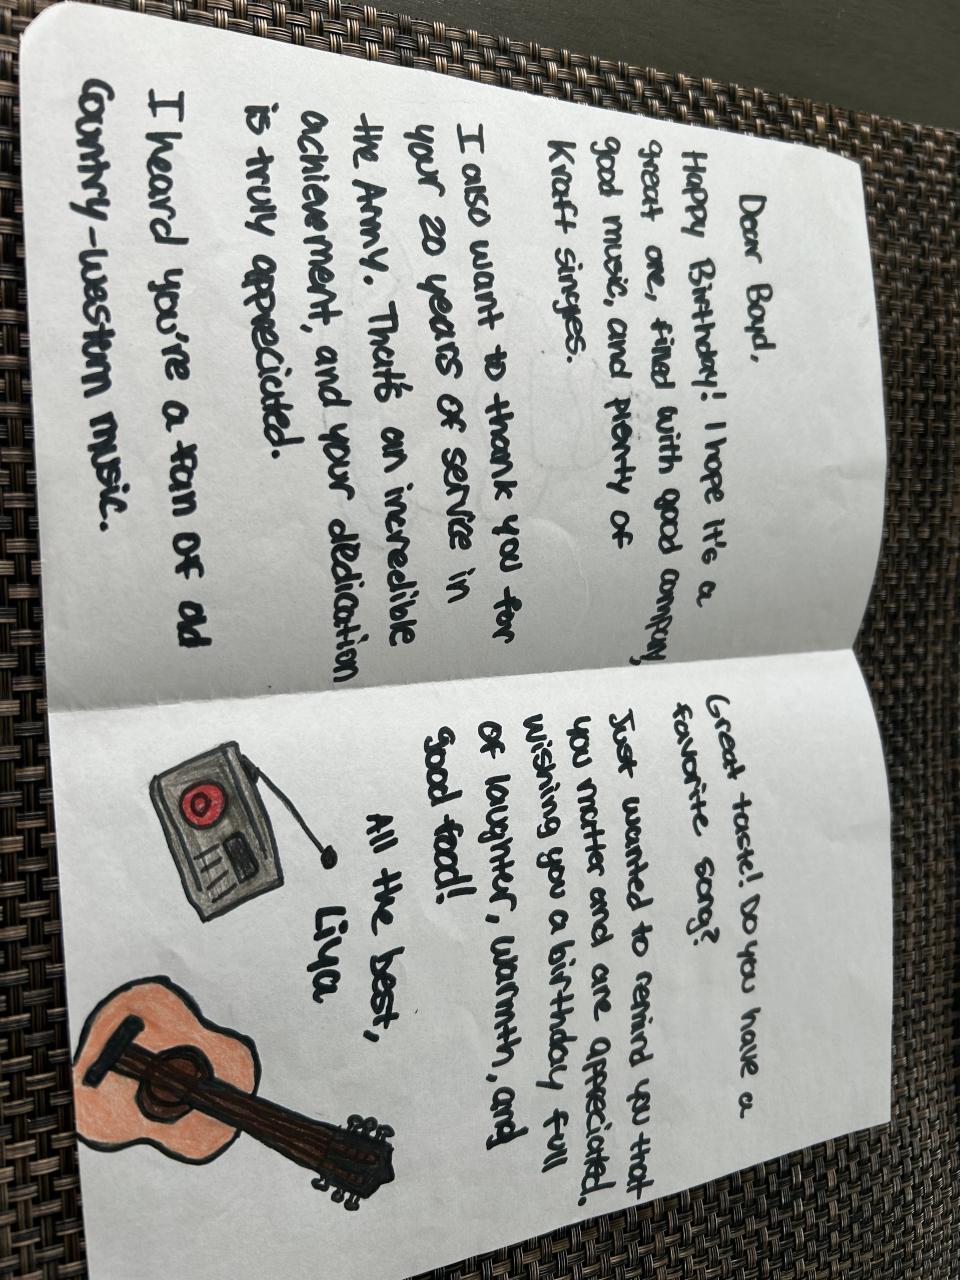 Dear Boyd,
Happy Birthday! I hope it's a
great one, filled with good company,
good music, and plenty of
Kraft singles.
I also want to thank you for
your 20 years of service in
the Army. That's an incredible
achievement, and your dedication
is truly appreciated.
I heard you're a fan of old
Country-western music.
Great taste! Do you have a
favorite song?
Just wanted to remind you that
you matter and are appreciated.
Wishing you a birthday full
of laughter, warmth, and
good food!
All the best,
Liya